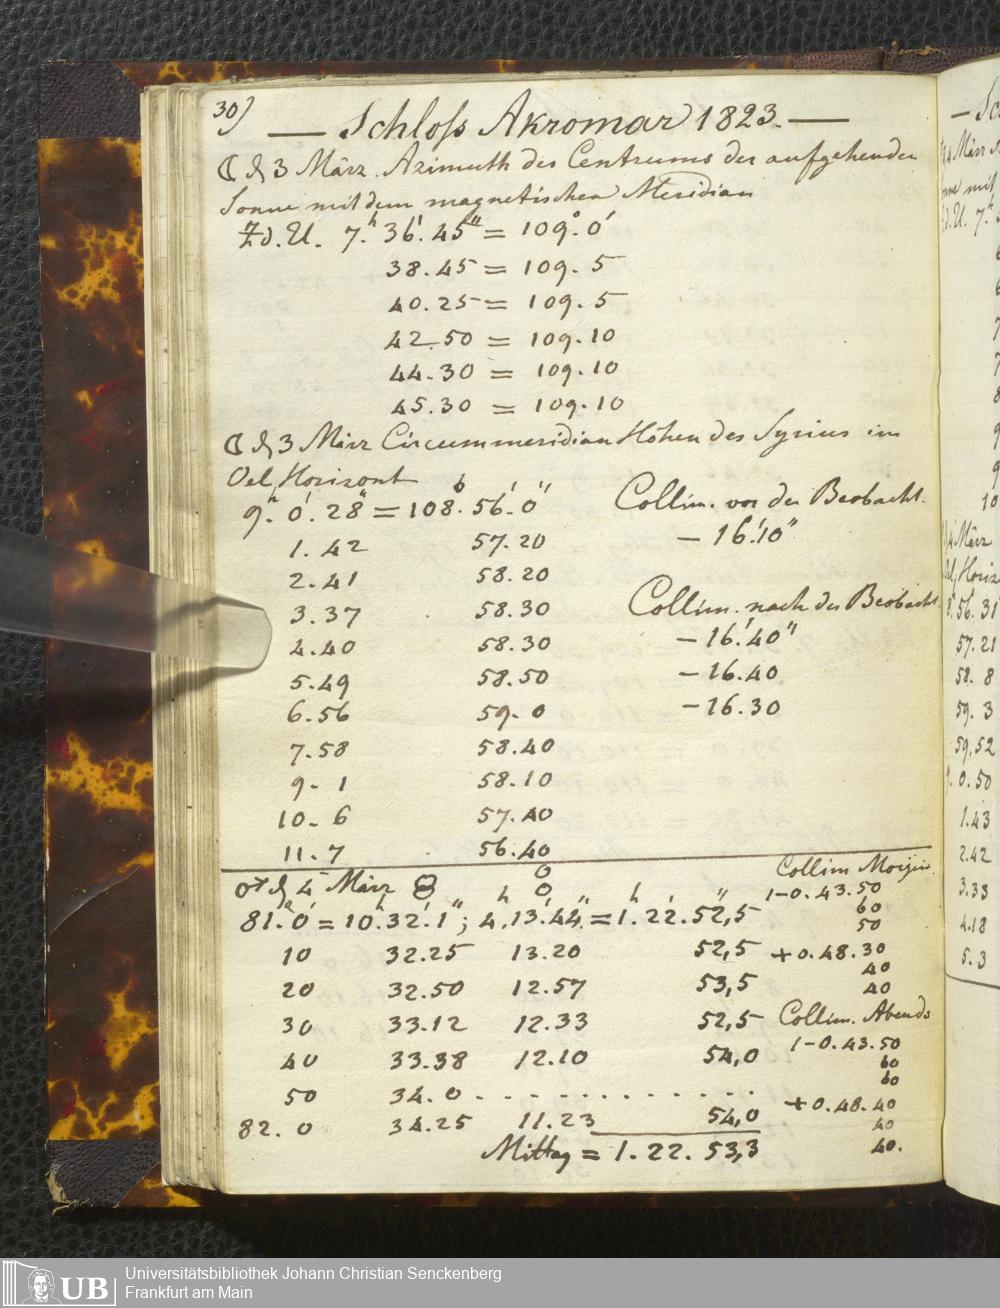 30)
— Schloss Akromar 1823. —
☾ d 3 März. Azimuth des Centrums der aufgehenden
Sonne mit dem magnetischen Meridian
Zd. U. 7.h 36.' 45" = 109.° 0'
38.45 = 109. 5
40.25 = 109. 5
42.50 = 109.10
44.30 = 109.10
45.30 = 109.10
☾ d 3 März Circummeridian Höhen des Syrius im
Oel Horizont
9.h 0.' 28" = 108.° 56.' 0" Collim. vor der Beobacht.
1.42 57.20 - 16.' 10"
2.41 58.20
3.37 58.30 Collim. nach der Beobacht.
4.40 58.30 - 16.' 40"
5.49 58.50 - 16.40
6.56 59. 0 - 16.30
7.58 58.40
9. 1 58.10
10. 6 57.40
11. 7 56.40
♂ d 4 März Collim Morgens
81.° 0' = 10.h 32.' 1"; 4.h 13.' 44" = 1.h 22.' 52,"5 1-0.43.50
60
50
10 32.25 13.20 52,5 +0.48.30
40
20 32.50 12.57 53,5 40
30 33.12 12.33 52,5 Collim. Abends
40 33.38 12.10 54,0 1-0.43.50
60
60
50 34. 0 - - - - - - - - - - - - -
82. 0 34.25 11.23 54,0 +0.48.40
40
Mittag = 1. 22. 53,3 40.
- Sc
März
Sonne mit
Zd. U. 7.h
10
März
Horiz
8. 56. 31
57.21
58. 8
59. 3
59.52
9. 0.50
1.43
2.42
3.33
4.18
5.3
UB
Universitätsbibliothek Johann Christian Senckenberg
Frankfurt am Main